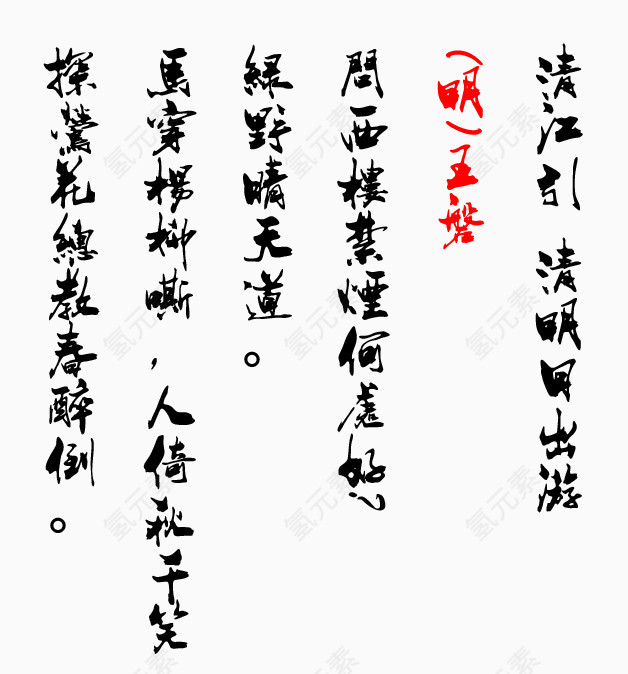 清江引 清明日出游
(明)王磐
問西樓禁煙何處好?
綠野晴天道。
馬穿楊柳嘶,人倚秋千笑
探鶯花總教春醉倒。
氢元素
氢元素
氢元素
氢元素
氢元素
氢元素
氢元素
氢元素
氢元素
氢元素
氢元素
氢元素